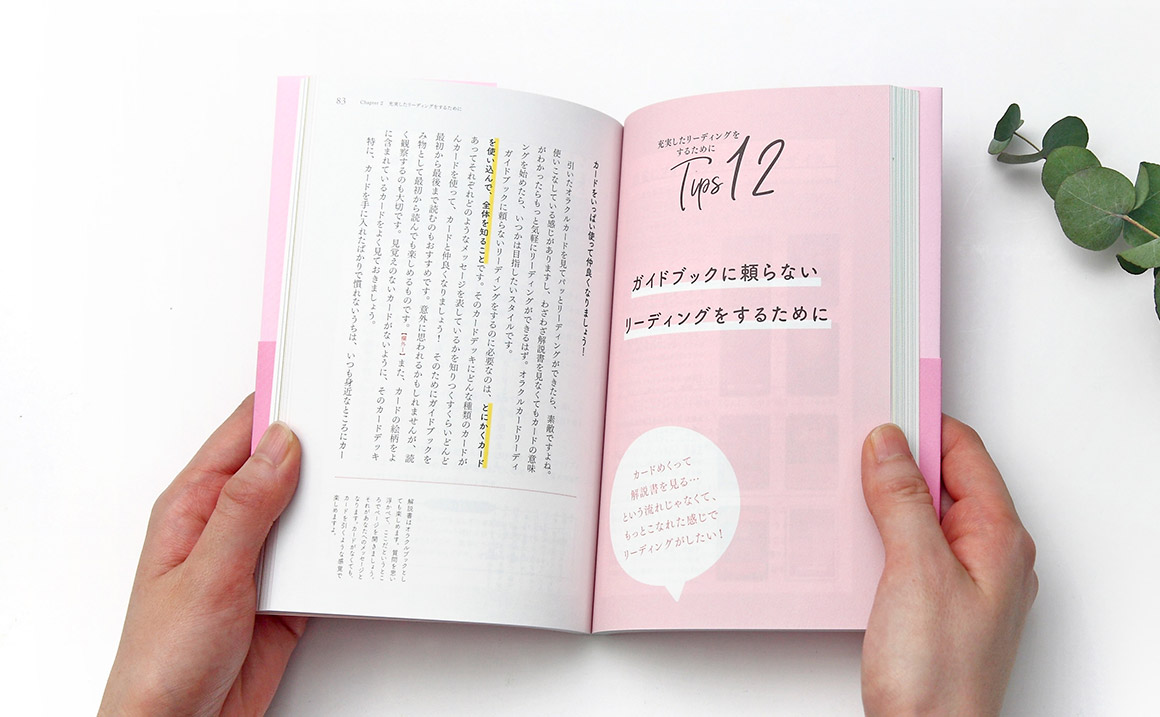 充実したリーディングを
するために
Tips 12
ガイドブックに頼らない
リーディングをするために
カードめくって
解説書を見る…
という流れじゃなくて、
もっとこなれた感じで
リーディングがしたい!
83
Chapter 2 充実したリーディングをするために
カードをいっぱい使って仲良くなりましょう!
引いたオラクルカードを見てパッとリーディングができたら、素敵ですよね。
使いこなしている感じがありますし、わざわざ解説書を見なくてもカードの意味
がわかったらもっと気軽にリーディングができるはず。オラクルカードリーディ
ングを始めたら、いつかは目指したいスタイルです。
ガイドブックに頼らないリーディングをするのに必要なのは、とにかくカード
を使い込んで、全体を知ることです。そのカードデッキにどんな種類のカードが
あってそれぞれどのようなメッセージを表しているかを知りつくすくらいどんど
んカードを使って、カードと仲良くなりましょう! そのためにガイドブックを
最初から最後まで読むのもおすすめです。意外に思われるかもしれませんが、読
み物として最初から読んでも楽しめるものです。【欄外1】また、カードの絵柄をよ
く観察するのも大切です。見覚えのないカードがないように、そのカードデッキ
に含まれているカードをよく見ておきましょう。
特に、カードを手に入ればかりで慣れないうちは、いつも身近なところにカー
解説書はオラクルブックとし
ても楽しめます。質問を思い
浮かべて、ここだというとこ
ろでページを開きましょう。
それがあなたへのメッセージと
なります。カードがなくても、
カードを引くような感覚で
楽しめますよ。